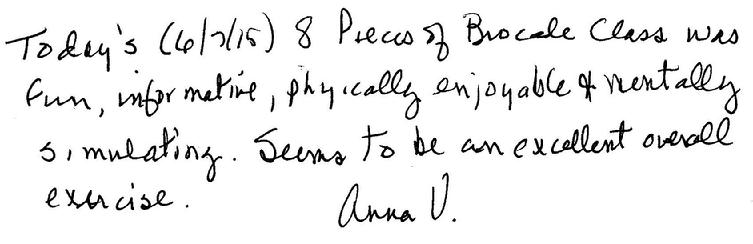 Today's (6/7/15) 8 Pieces of Brocade Class was
fun, informative, physically enjoyable & mentally
simulating. Seems to be an excellent overall
exercise. Anna V.